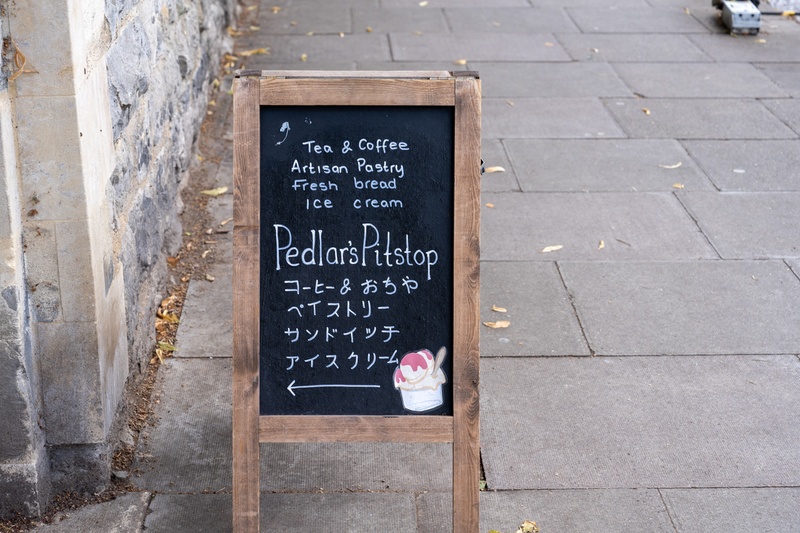 Tea & Coffee
Artisan Pastry
Fresh bread
Ice cream
Pedlar's Pitstop
コーヒー & おちゃ
ペイストリー
サンドイッチ
アイスクリーム